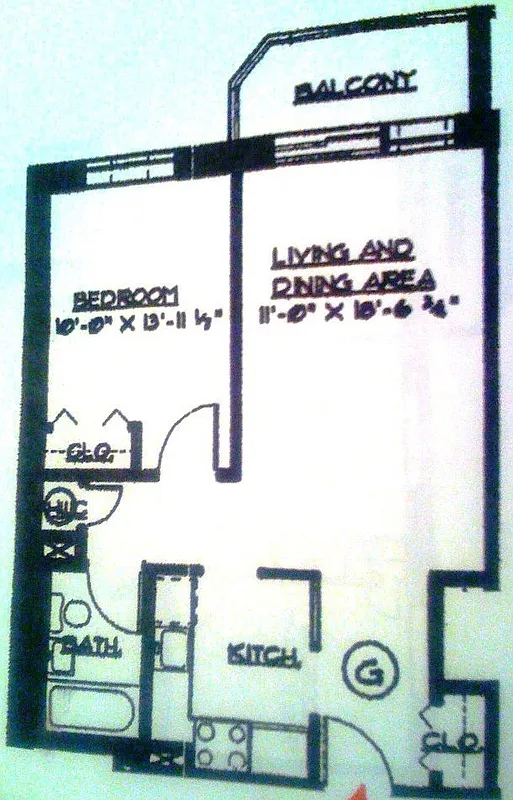 BALCONY
LIVING AND
DINING AREA
11'-0" X 18'-6 3/4"
BEDROOM
10'-0" X 13'-11 1/2"
CLO.
BATH.
KITCH.
G
CLO.